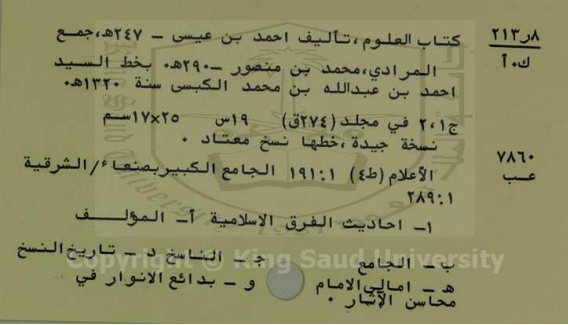 ٢١٣٫٨
ك٠أ
كتاب العلوم،تأليف احمد بن عيسى ـ ٢٤٧هـ،جمع
المرادي،محمد بن منصور ـ٢٩٠هـ٠ بخط السيد
احمد بن عبدالله بن محمد الكبسى سنة ١٣٢٠هـ٠
ج١،٢ في مجلد (٢٧٤ق) ١٩س ٢٥×١٧سم
نسخة جيدة،خطها نسخ معتاد ٠
٧٨٦٠
عب
الأعلام (ط٤) ١٩١:١ الجامع الكبيربصنعاء/الشرقية
٢٨٩:١
١ـ احاديث الفرق الاسلامية أـ المؤلف
ب ـ الجامع جـ ـ الناسخ د ـ تاريخ النسخ
هـ ـ امالي الامام و ـ بدائع الانوار في
محاسن الآثار ٠
Copyright © King Saud University